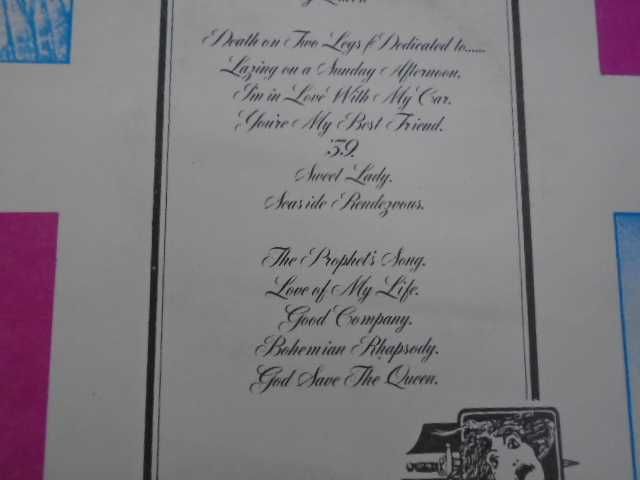 Queen
Death on Two Legs (Dedicated to......
Lazing on a Sunday Afternoon.
I'm in Love With My Car.
You're My Best Friend.
'39.
Sweet Lady.
Seaside Rendezvous.
The Prophet's Song.
Love of My Life.
Good Company.
Bohemian Rhapsody.
God Save The Queen.